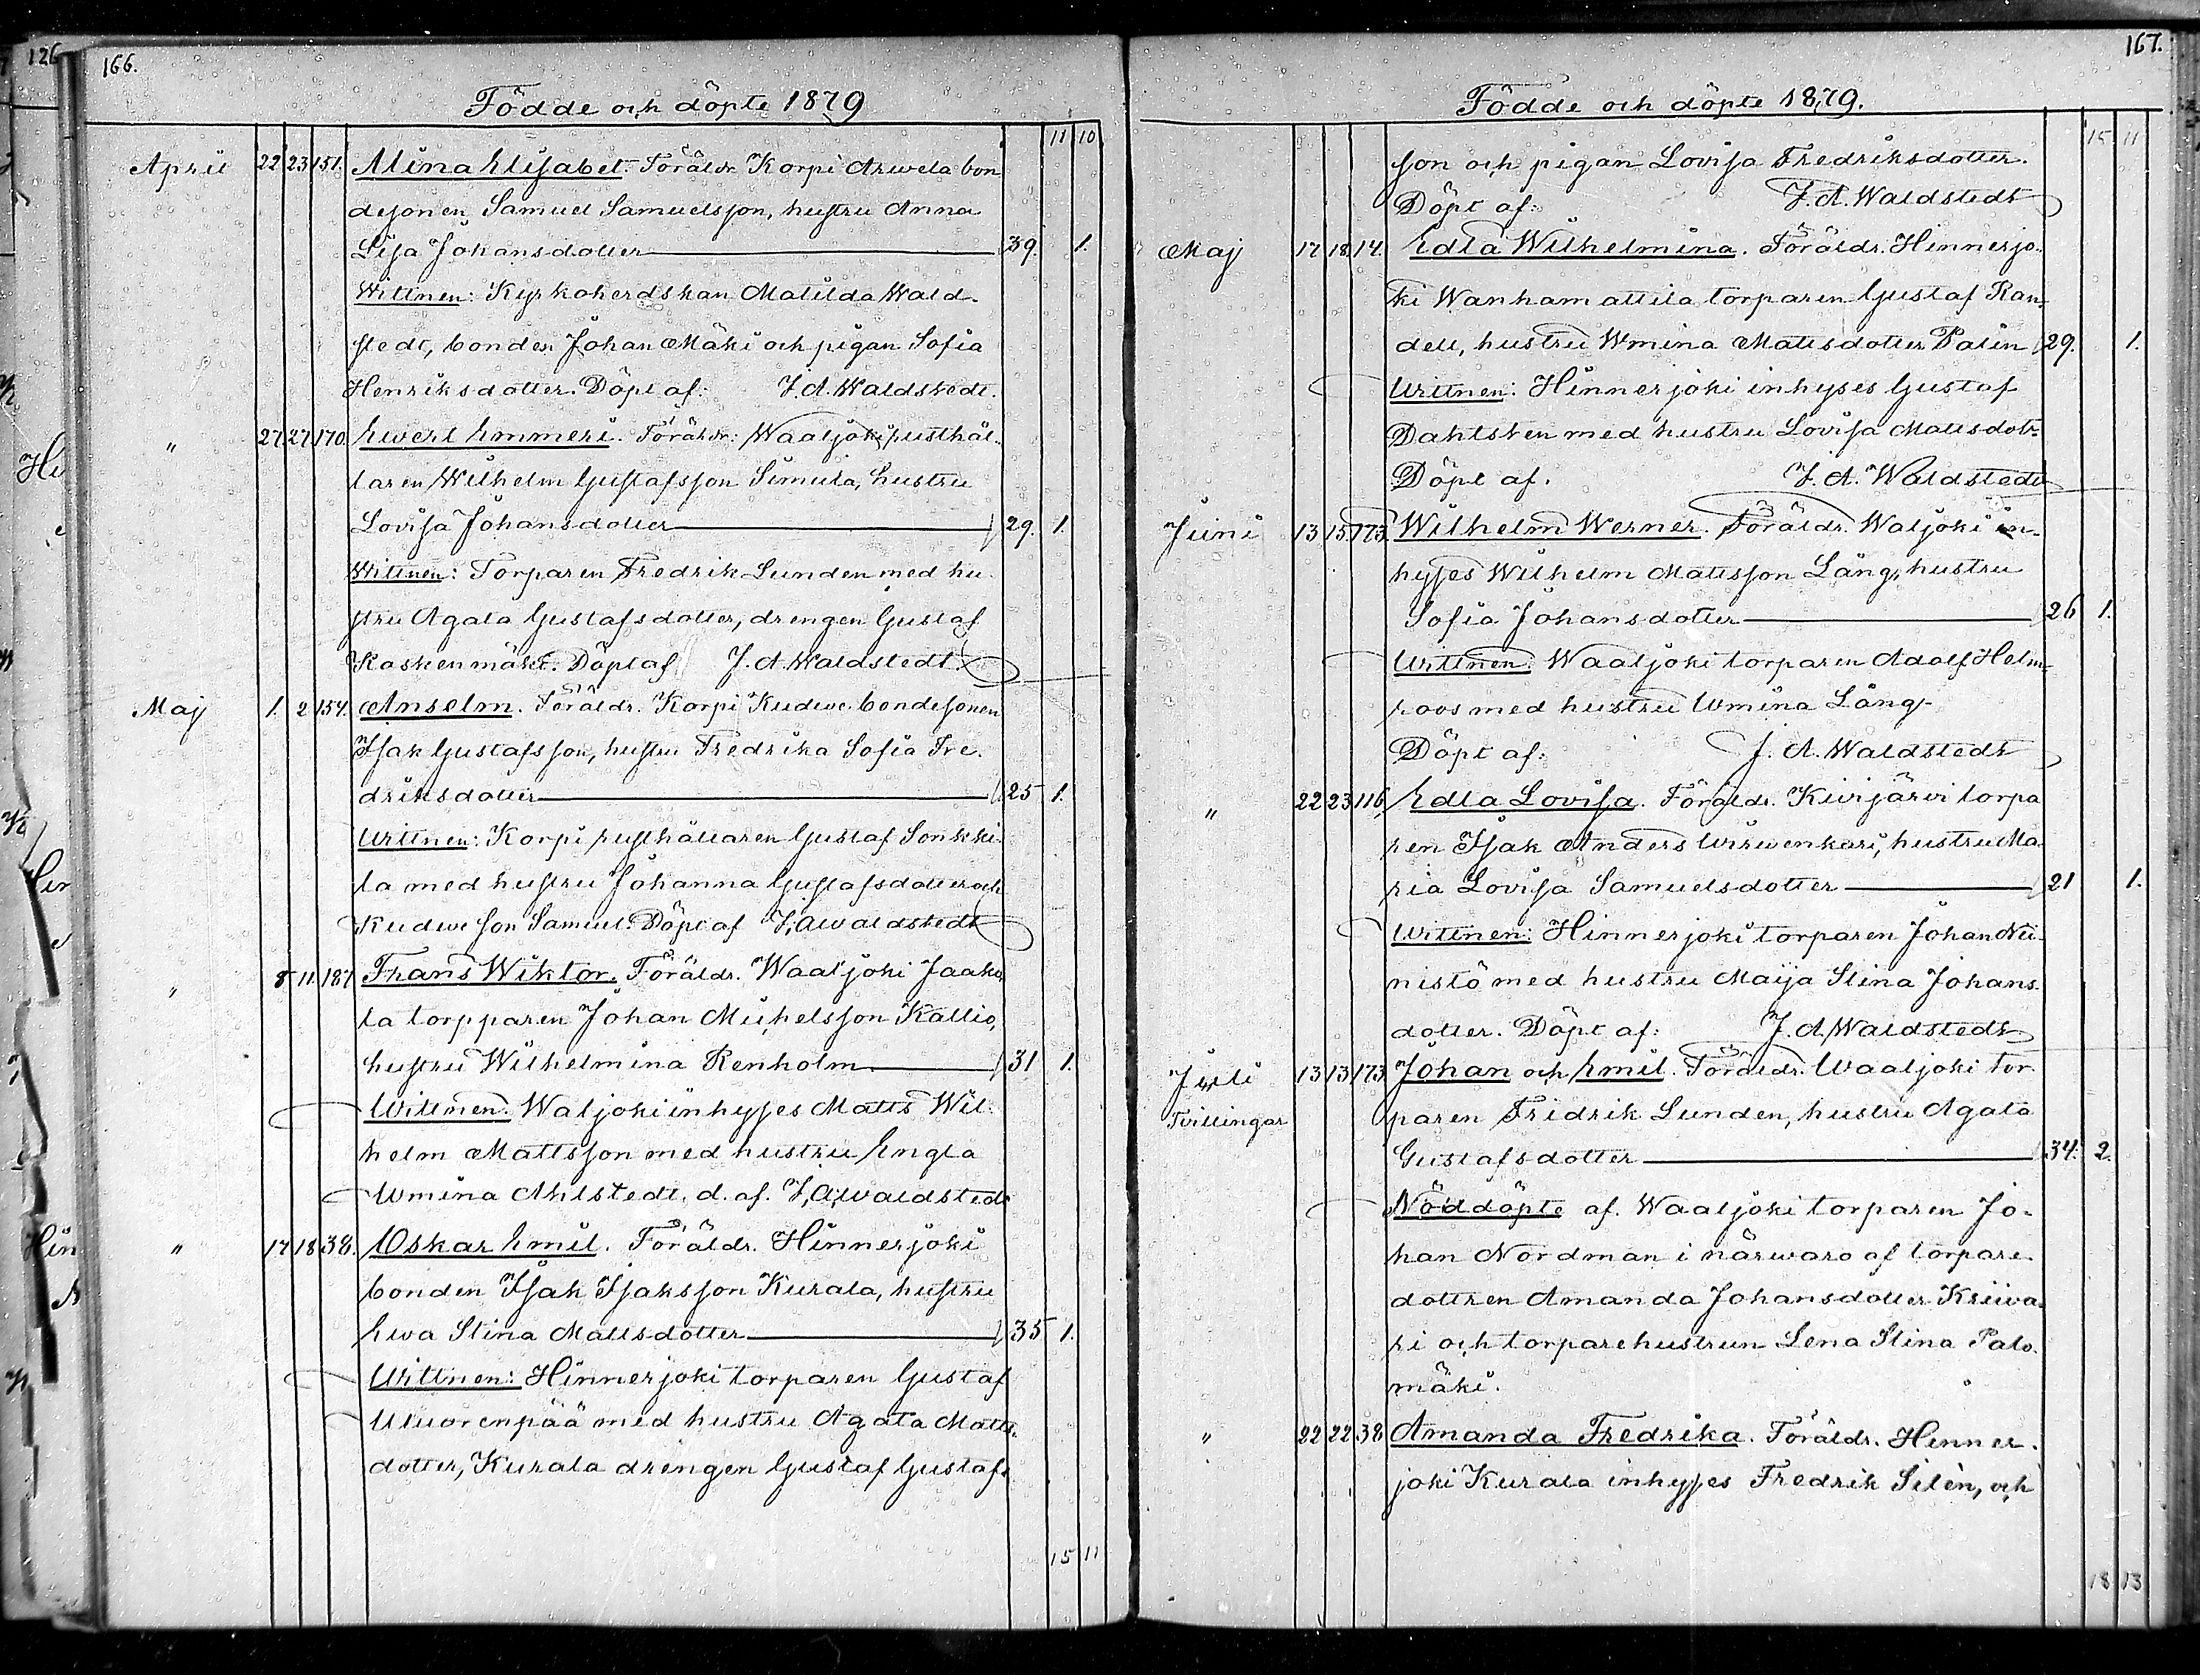 126
166.
Födde och döpte 1879
11 10
April 22 23 151. Alina Elisabet. Föräldr. Korpi Arwela bon
desonen Samuel Samuelsson, hustru Anna
Lisa Johansdotter 39. 1.
Wittnen: Kyrkoherdskan Matilda Wald-
stedt, bonden Johan Mäki och pigan Sofia
Henriksdotter. Döpt af: J. A. Waldstedt.
" 27 27 170. Ewert Emmeri. Föräldr: Waaljoki rusthål-
laren Wilhelm Gustafsson Simula, hustru
Lovisa Johansdotter 29. 1.
Wittnen: Torparen Fredrik Lunden med hu-
stru Agata Gustafsdotter, drengen Gustaf
Kaskenmäki. Döpt af J. A. Waldstedt
Maj 1. 2 154. Anselm. Föräldr. Korpi Kudwe bondesonen
Isak Gustafsson, hustru Fredrika Sofia Fre-
driksdotter 25 1.
Wittnen: Korpi rusthållaren Gustaf Sonkki-
la med hustru Johanna Gustafsdotter och
Kudwe son Samuel. Döpt af J. A. Waldstedt
" 8 11. 187 Frans Wiktor. Föräldr. Waaljoki Jaako
la torpparen Johan Michelsson Kallio,
hustru Wilhelmina Renholm 31 1.
Wittnen. Waljoki inhyses Matts Wil-
helm Mattsson med hustru Engla
Wmina Ahlstedt, d. af. J. A. Waldstedt
" 17 18 38. Oskar Emil. Föräldr. Hinnerjoki
bonden Isak Isaksson Kurala, hustru
Ewa Stina Mattsdotter 35 1.
Wittnen: Hinnerjoki torparen Gustaf
Wuorenpää med hustru Agata Matts-
dotter, Kurala drengen Gustaf Gustafs
15 11
167.
Födde och döpte 1879.
15 11
son och pigan Lovisa Fredriksdotter.
Döpt af: J. A. Waldstedt
Maj 17 18. 14. Edla Wilhelmina. Föräldr. Hinnerjo-
ki Wanhamattila torparen Gustaf Ran-
dell, hustru Wmina Mattsdotter Palin 29. 1.
Wittnen: Hinnerjoki inhyses Gustaf
Dahlsten med hustru Lovisa Mattsdotr
Döpt af. J. A. Waldstedt
Juni 13 15. 173. Wilhelm Werner. Föräldr. Waljoki in-
hyses Wilhelm Mattsson Lång, hustru
Sofia Johansdotter 26 1.
Wittnen. Waaljoki torparen Adolf Helm-
roos med hustru Wmina Lång
Döpt af: J. A. Waldstedt
" 22 23 116. Edla Lovisa. Föräldr. Kivijärvi torpa
ren Isak Anders Wirwenkari, hustru Ma
ria Lovisa Samuelsdotter 21 1.
Wittnen: Hinnerjoki torparen Johan Nii-
nistö med hustru Maija Stina Johans-
dotter. Döpt af: J. A. Waldstedt
Juli 13 13 173 Johan och Emil. Föräldr. Waaljoki tor
Tvillingar
paren Fridrik Lunden, hustru Agata
Gustafsdotter 34. 2.
Nöddöpte af. Waaljoki torparen Jo-
han Nordman i närwaro af torpare-
dottren Amanda Johansdotter Kriiva-
ri och torparehustrun Lena Stina Palo-
mäki.
" 22 22 38 Amanda Fredrika. Föräldr. Hinner-
joki Kurala inhyses Fredrik Silèn, och
18 13